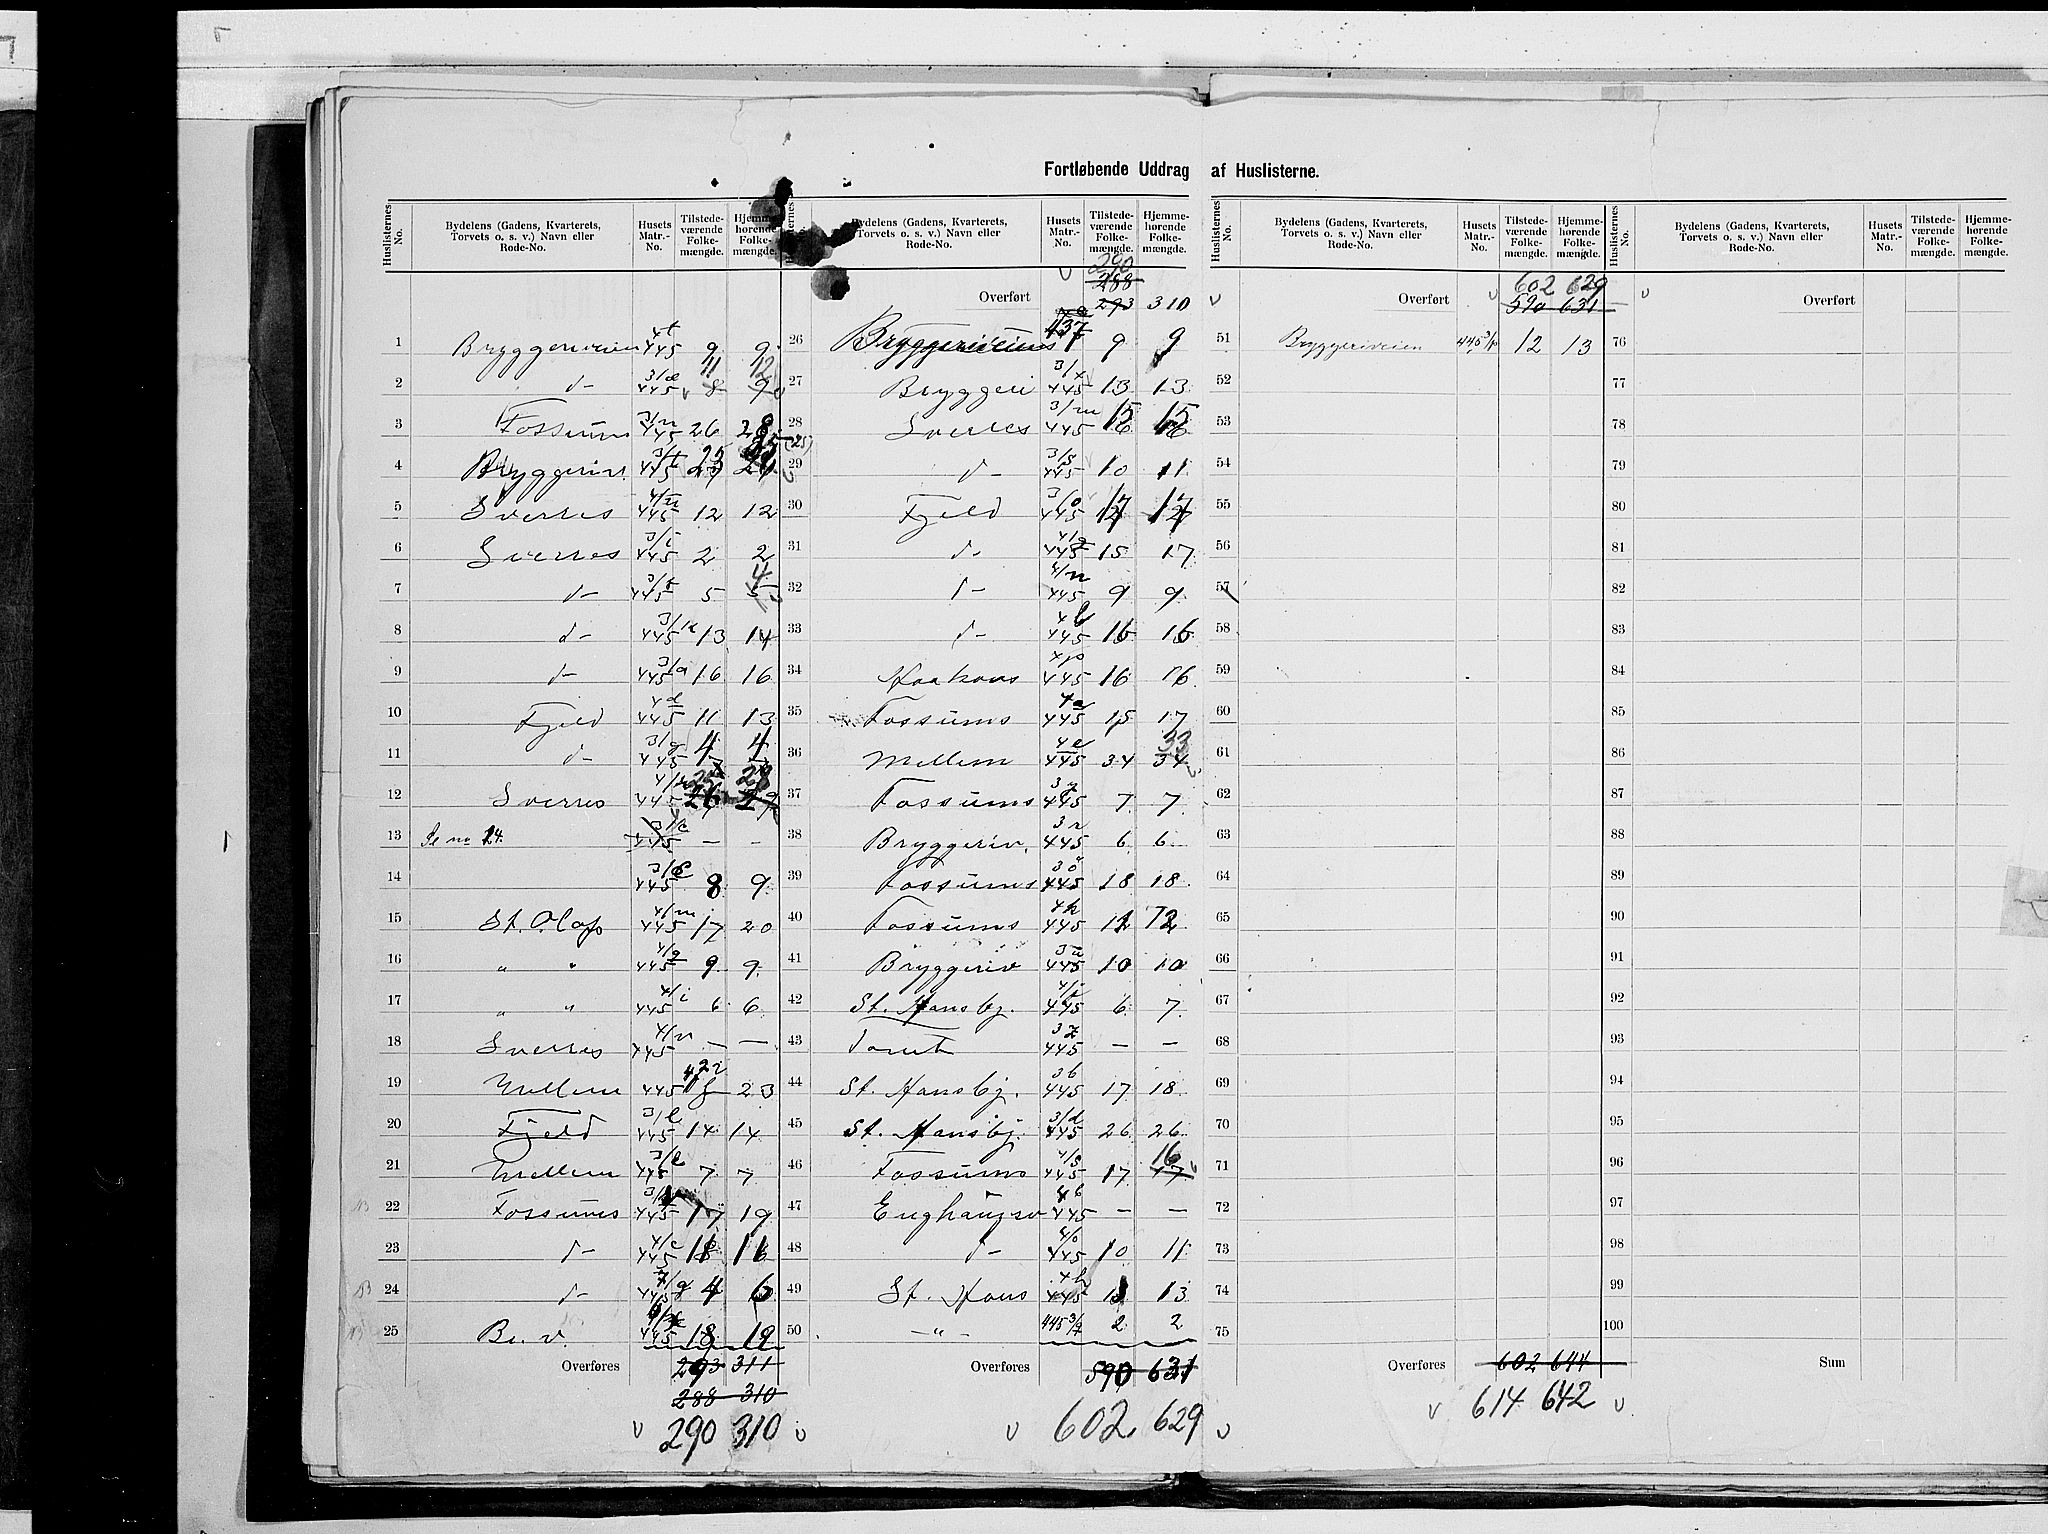 Fortløbende Uddrag af Huslisterne.
Huslisternes No. Bydelens (Gadens, Kvarterets, Torvets o. s. v.) Navn eller Rode-No. Husets Matr.-No. Tilstedeværende Folkemængde. Hjemmehørende Folkemængde.
1 Bryggeriveien 4t 445 9 9
2 d- 3/æ 445 8 11 9 12
3 Fossum 445 26 28
4 Bryggeriv. 445 25
5 Sverres 445 12 12
6 Sverres 3/i 445 2 2
7 d- 445 5 5 4
8 d- 3/k 445 13 14
9 d- 3/a 445 16 16
10 Fjeld 4d 445 11 13
11 d- 3/g 445 4 4
12 Sverres 445 26 29 28
13 Se no 14. 3/c 445 - -
14 445 8 9
15 St. Olafs 4/m 445 17 20
16 " " 4/g 445 9 9
17 " " 4/i 445 6 6
18 Sverres 4/n 445 - -
19 Mellem 445 22 23
20 Fjeld 3/l 445 14 14
21 Mellem 445 7 7
22 Fossums 445 17 19
23 d- 4/c 445 18 16
24 d- 445 4 6
25 Br. v. 445 18 19
Overføres 293 311
288 310
290 310
Huslisternes No. Bydelens (Gadens, Kvarterets, Torvets o. s. v.) Navn eller Rode-No. Husets Matr.-No. Tilstedeværende Folkemængde. Hjemmehørende Folkemængde.
290
288
Overført 293 310
26 Bryggeriveien 437 9 9
27 Bryggeri 445 13 13
28 Sverres 3/m 445 15 15
29 d- 3/s 445 10 11
30 Fjeld 3/o 445 17 17
31 d- 445 15 17
32 d- 4/n 445 9 9
33 d- 445 16 16
34 Haakons 4p 445 16 16
35 Fossums 4a 445 15 17
36 Mellem 4e 445 34 34 33
37 Fossums 445 7 7
38 Bryggeriv. 3r 445 6 6
39 Fossums 3ö 445 18 18
40 Fossums 4k 445 12 12
41 Bryggeriv 445 10 10
42 St. Hansbj. 445 6 7
43 Tomt 3z 445 - -
44 St. Hansbj. 3b 445 17 18
45 St. Hansbj. 3/d 445 26 26
46 Fossums 4/s 445 17 17 16
47 Enghaugsv 445 - -
48 d- 445 10 11
49 St. Hans 4h 445 13 13
50 -"- 445 2 2
Overføres 590 631
602 629
Huslisternes No. Bydelens (Gadens, Kvarterets, Torvets o. s. v.) Navn eller Rode-No. Husets Matr.-No. Tilstedeværende Folkemængde. Hjemmehørende Folkemængde.
602 629
Overført 590 631
51 Bryggeriveien 445 12 13
52
53
54
55
56
57
58
59
60
61
62
63
64
65
66
67
68
69
70
71
72
73
74
75
Overføres 602 644
614 642
Huslisternes No. Bydelens (Gadens, Kvarterets, Torvets o. s. v.) Navn eller Rode-No. Husets Matr.-No. Tilstedeværende Folkemængde. Hjemmehørende Folkemængde.
Overført
76
77
78
79
80
81
82
83
84
85
86
87
88
89
90
91
92
93
94
95
96
97
98
99
100
Sum